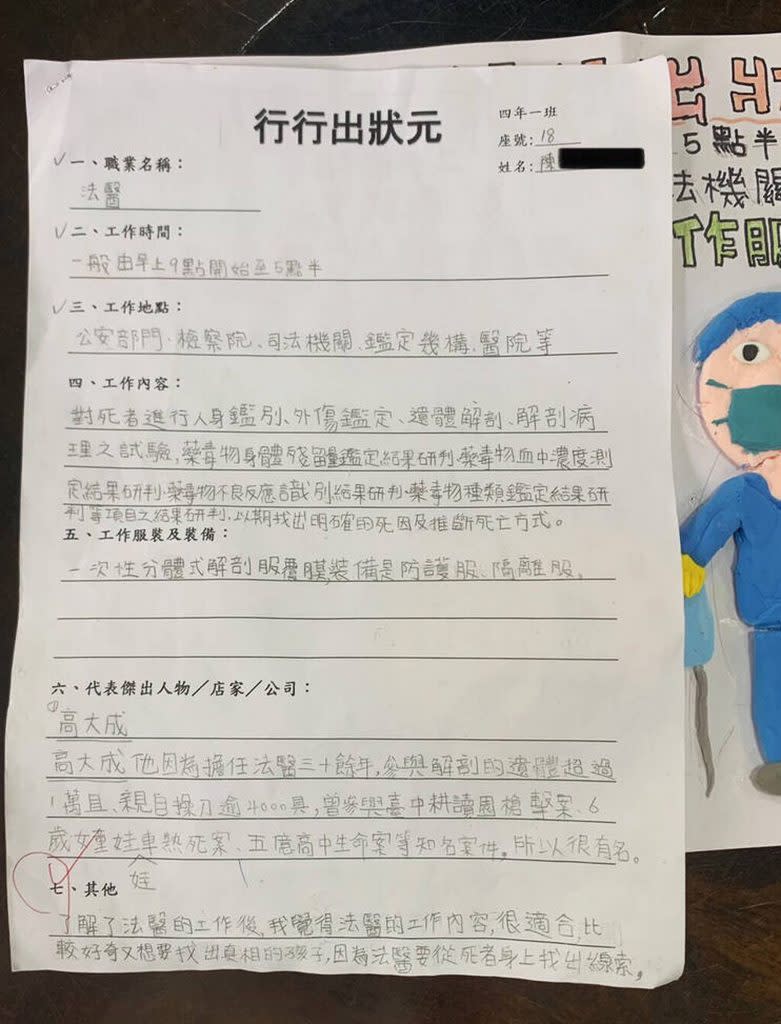 行行出狀元
四年一班
座號: 18
姓名: 陳
一、職業名稱：
法醫
二、工作時間：
一般由早上9點開始至5點半
三、工作地點：
公安部門、檢察院、司法機關、鑑定幾構、醫院等
四、工作內容：
對死者進行人身鑑別、外傷鑑定、遺體解剖、解剖病
理之試驗,藥毒物身體殘留量鑑定結果研判、藥毒物血中濃度測
定結果研判、藥毒物不良反應識別結果研判、藥毒物種類鑑定結果研
判等項目之結果研判,以期找出明確的死因及推斷死亡方式。
五、工作服裝及裝備：
一次性分體式解剖服覆膜,裝備是防護服、隔離服。
六、代表傑出人物／店家／公司：
①
高大成
高大成他因為擔任法醫三十餘年,參與解剖的遺體超過
1萬具、親自操刀逾4000具,曾參與臺中耕讀園槍擊案、6
歲女童娃車熱死案、五億高中生命案等知名案件。所以很有名。
娃
七、其他
了解了法醫的工作後,我覺得法醫的工作內容,很適合,比
較好奇又想要找出真相的孩子,因為法醫要從死者身上找出線索,
出狀
5點半
法機關
工作服